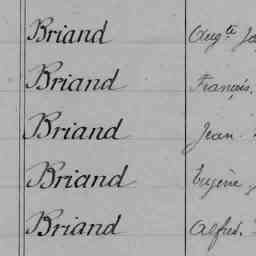 Briand Aug.te
Briand François.
Briand Jean
Briand Eugène
Briand Alfred.